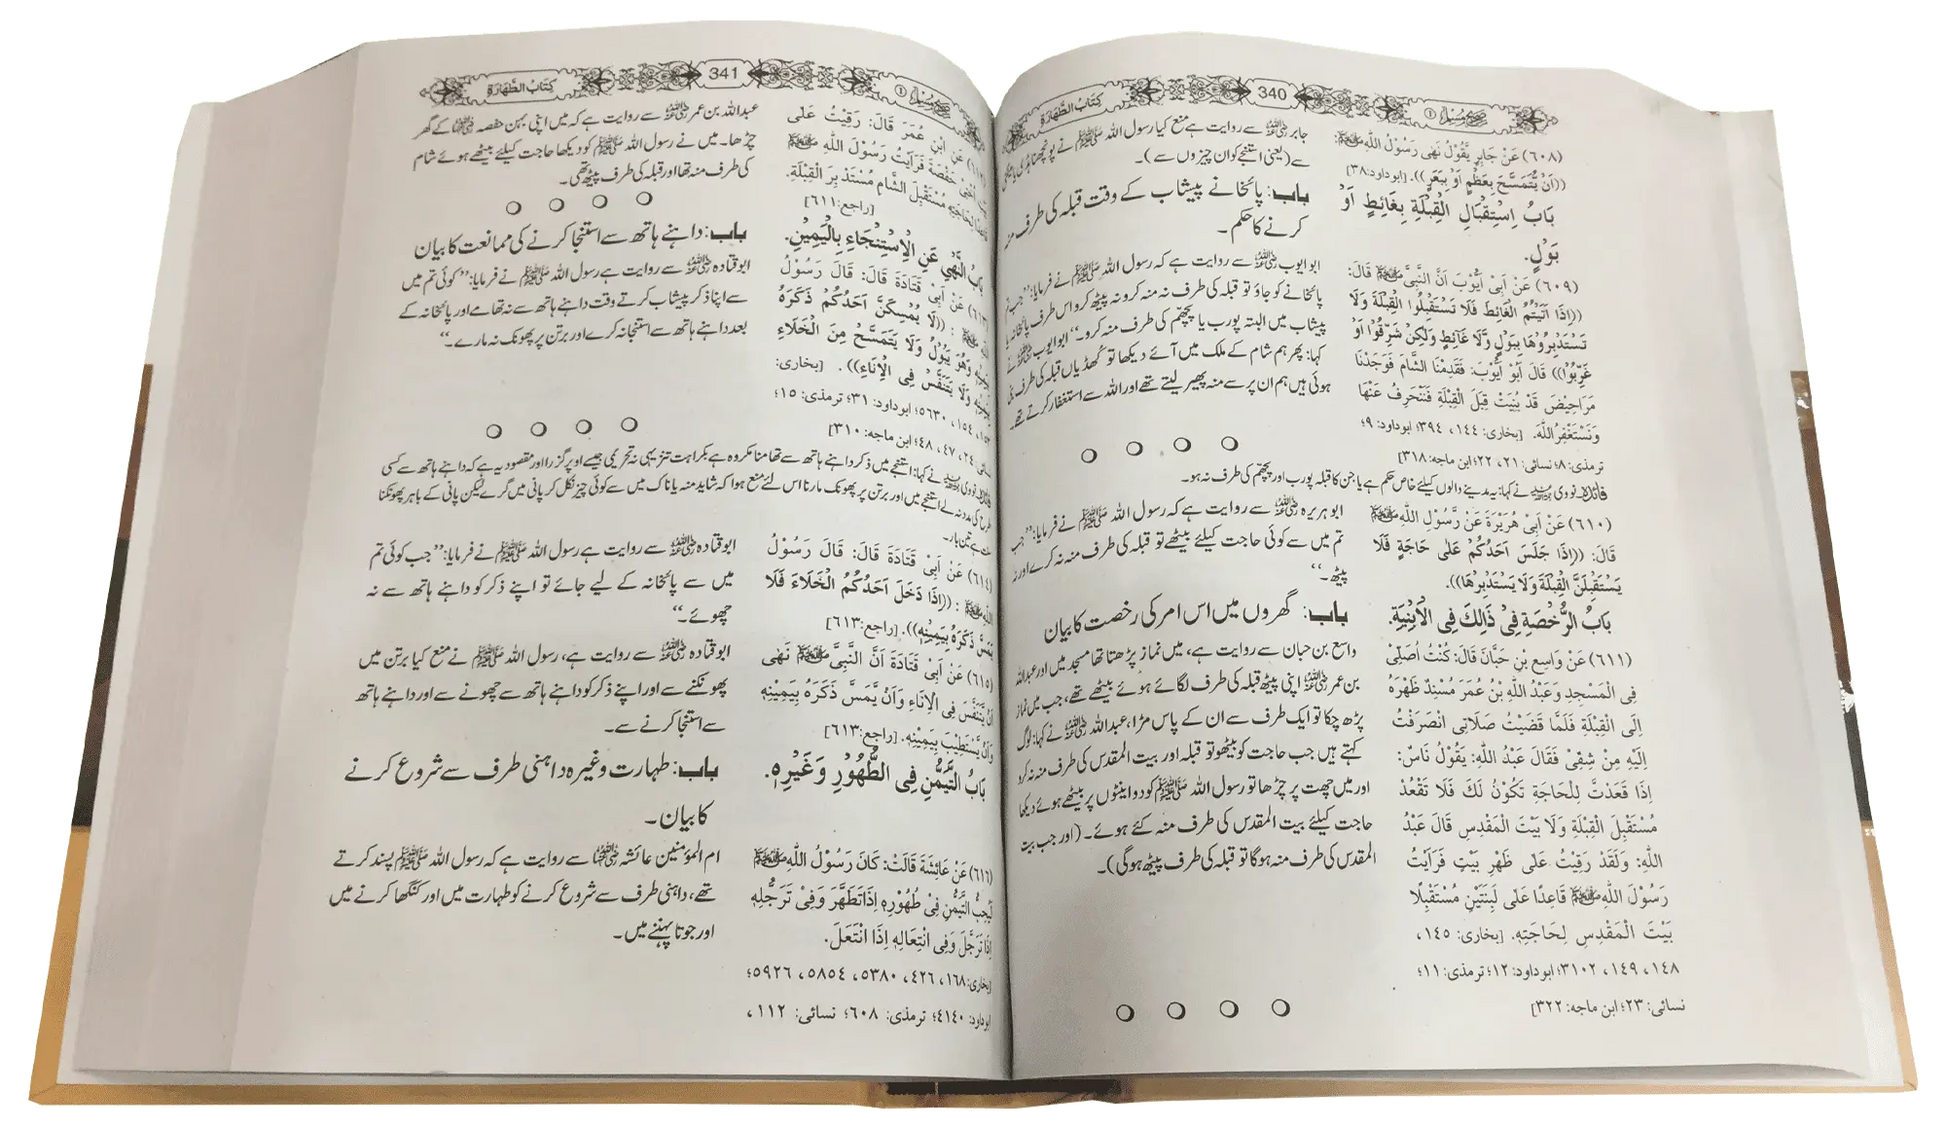 340
كتاب الطهارة
صحیح مسلم ①
(٦٠٨) عَنْ جَابِرٍ يَّقُوْلُ نَهٰى رَسُوْلُ اللّٰهِ ﷺ
((اَنْ يُّتَمَسَّحَ بِعَظْمٍ اَوْ بِبَعَرٍ)). [ابوداود:٣٨]
بَابُ اسْتِقْبَالِ الْقِبْلَةِ بِغَائِطٍ اَوْ
بَوْلٍ.
(٦٠٩) عَنْ اَبِیْ اَيُّوْبَ اَنَّ النَّبِیَّ ﷺ قَالَ:
((اِذَا اَتَيْتُمُ الْغَائِطَ فَلَا تَسْتَقْبِلُوا الْقِبْلَةَ وَلَا
تَسْتَدْبِرُوْهَا بِبَوْلٍ وَّلَا غَائِطٍ وَلٰكِنْ شَرِّقُوْا اَوْ
غَرِّبُوْا)) قَالَ اَبُوْ اَيُّوْبَ: فَقَدِمْنَا الشَّامَ فَوَجَدْنَا
مَرَاحِيْضَ قَدْ بُنِيَتْ قِبَلَ الْقِبْلَةِ فَنَنْحَرِفُ عَنْهَا
وَنَسْتَغْفِرُ اللّٰهَ. [بخاری: ١٤٤، ٣٩٤؛ ابوداود: ٩؛
ترمذی: ٨؛ نسائی: ٢١، ٢٢؛ ابن ماجه: ٣١٨]
جابر رضی اللہ عنہ سے روایت ہے منع کیا رسول اللہ ﷺ نے پونچھنا ہڈی یا
سے (یعنی استنجے کو ان چیزوں سے)۔
باب: پائخانے پیشاب کے وقت قبلہ کی طرف
کرنے کا حکم۔
ابو ایوب رضی اللہ عنہ سے روایت ہے کہ رسول اللہ ﷺ نے فرمایا: ”جب تم
پائخانے کو جاؤ تو قبلہ کی طرف نہ منہ کرو نہ پیٹھ کرو اس طرف پائخانہ یا
پیشاب میں البتہ پورب یا پچھم کی طرف منہ کرو۔“ ابو ایوب رضی اللہ عنہ نے
کہا: پھر ہم شام کے ملک میں آئے دیکھا تو کھڈیاں قبلہ کی طرف بنی
ہوئی ہیں ہم ان پر سے منہ پھیر لیتے تھے اور اللہ سے استغفار کرتے تھے۔
فائدہ: نووی نے کہا: یہ مدینے والوں کیلئے خاص حکم ہے یا جن کا قبلہ پورب اور پچھم کی طرف نہ ہو۔
(٦١٠) عَنْ اَبِیْ هُرَيْرَةَ عَنْ رَّسُوْلِ اللّٰهِ ﷺ
قَالَ: ((اِذَا جَلَسَ اَحَدُكُمْ عَلٰى حَاجَةٍ فَلَا
يَسْتَقْبِلَنَّ الْقِبْلَةَ وَلَا يَسْتَدْبِرْهَا)).
بَابُ الرُّخْصَةِ فِیْ ذَالِكَ فِی الْاَبْنِيَةِ.
(٦١١) عَنْ وَاسِعِ بْنِ حَبَّانَ قَالَ: كُنْتُ اُصَلِّیْ
فِی الْمَسْجِدِ وَعَبْدُ اللّٰهِ بْنُ عُمَرَ مُسْنِدٌ ظَهْرَهُ
اِلَى الْقِبْلَةِ فَلَمَّا قَضَيْتُ صَلَاتِی انْصَرَفْتُ
اِلَيْهِ مِنْ شِقِّیْ فَقَالَ عَبْدُ اللّٰهِ: يَقُوْلُ نَاسٌ:
اِذَا قَعَدْتَّ لِلْحَاجَةِ تَكُوْنُ لَكَ فَلَا تَقْعُدْ
مُسْتَقْبِلَ الْقِبْلَةِ وَلَا بَيْتَ الْمَقْدِسِ قَالَ عَبْدُ
اللّٰهِ: وَلَقَدْ رَقِيْتُ عَلٰى ظَهْرِ بَيْتٍ فَرَاَيْتُ
رَسُوْلَ اللّٰهِ ﷺ قَاعِدًا عَلٰى لَبِنَتَيْنِ مُسْتَقْبِلًا
بَيْتَ الْمَقْدِسِ لِحَاجَتِهِ. [بخاری: ١٤٥،
١٤٨، ١٤٩، ٣١٠٢؛ ابوداود: ١٢؛ ترمذی: ١١؛
نسائی: ٢٣؛ ابن ماجه: ٣٢٢]
ابوہریرہ رضی اللہ عنہ سے روایت ہے کہ رسول اللہ ﷺ نے فرمایا: ”جب
تم میں سے کوئی حاجت کیلئے بیٹھے تو قبلہ کی طرف منہ نہ کرے اور نہ
پیٹھ۔“
باب: گھروں میں اس امر کی رخصت کا بیان
واسع بن حبان سے روایت ہے، میں نماز پڑھتا تھا مسجد میں اور عبداللہ
بن عمر رضی اللہ عنہ اپنی پیٹھ قبلہ کی طرف لگائے ہوئے بیٹھے تھے، جب میں نماز
پڑھ چکا تو ایک طرف سے ان کے پاس مڑا، عبداللہ رضی اللہ عنہ نے کہا: لوگ
کہتے ہیں جب حاجت کو بیٹھو تو قبلہ اور بیت المقدس کی طرف منہ نہ کرو
اور میں چھت پر چڑھا تو رسول اللہ ﷺ کو دو اینٹوں پر بیٹھے ہوئے دیکھا
حاجت کیلئے بیت المقدس کی طرف منہ کئے ہوئے۔ (اور جب بیت
المقدس کی طرف منہ ہوگا تو قبلہ کی طرف پیٹھ ہوگی)۔
341
كتاب الطهارة
صحیح مسلم ①
عَنِ ابْنِ عُمَرَ قَالَ: رَقِيْتُ عَلٰى
حَفْصَةَ فَرَاَيْتُ رَسُوْلَ اللّٰهِ ﷺ
مُسْتَقْبِلَ الشَّامِ مُسْتَدْبِرَ الْقِبْلَةِ.
[راجع: ٦١١]
بَابُ النَّهْیِ عَنِ الْاِسْتِنْجَاءِ بِالْيَمِيْنِ.
(٦١٣) عَنْ اَبِیْ قَتَادَةَ قَالَ: قَالَ رَسُوْلُ
ﷺ: ((لَا يُمْسِكَنَّ اَحَدُكُمْ ذَكَرَهُ
وَهُوَ يَبُوْلُ وَلَا يَتَمَسَّحْ مِنَ الْخَلَاءِ
وَلَا يَتَنَفَّسْ فِی الْاِنَاءِ)). [بخاری:
١٥٤، ٥٦٣٠؛ ابوداود: ٣١؛ ترمذی: ١٥؛
٢٤، ٤٧، ٤٨؛ ابن ماجه: ٣١٠]
عبداللہ بن عمر رضی اللہ عنہ سے روایت ہے کہ میں اپنی بہن حفصہ رضی اللہ عنہا کے گھر
چڑھا۔ میں نے رسول اللہ ﷺ کو دیکھا حاجت کیلئے بیٹھے ہوئے شام
کی طرف منہ تھا اور قبلہ کی طرف پیٹھ تھی۔
باب: داہنے ہاتھ سے استنجا کرنے کی ممانعت کا بیان
ابوقتادہ رضی اللہ عنہ سے روایت ہے رسول اللہ ﷺ نے فرمایا: ”کوئی تم میں
سے اپنا ذکر پیشاب کرتے وقت داہنے ہاتھ سے نہ تھامے اور پائخانہ کے
بعد داہنے ہاتھ سے استنجا نہ کرے اور برتن پر پھونک نہ مارے۔“
نے کہا: استنجے میں ذکر داہنے ہاتھ سے تھامنا مکروہ ہے بکراہت تنزیہی نہ تحریمی جیسے اوپر گزرا اور مقصود یہ ہے کہ داہنے ہاتھ سے کسی
طرح کی مدد نہ لے استنجے میں اور برتن پر پھونک مارنا اس لئے منع ہوا کہ شاید منہ یا ناک میں سے کوئی چیز نکل کر پانی میں گرے لیکن پانی کے باہر پھونکنا
ہے تین بار۔
(٦١٤) عَنْ اَبِیْ قَتَادَةَ قَالَ: قَالَ رَسُوْلُ
ﷺ: ((اِذَا دَخَلَ اَحَدُكُمُ الْخَلَاءَ فَلَا
يَمَسَّ ذَكَرَهُ بِيَمِيْنِهِ)). [راجع: ٦١٣]
(٦١٥) عَنْ اَبِیْ قَتَادَةَ اَنَّ النَّبِیَّ ﷺ نَهٰى
اَنْ يَّتَنَفَّسَ فِی الْاِنَاءِ وَاَنْ يَّمَسَّ ذَكَرَهُ بِيَمِيْنِهِ
وَاَنْ يَّسْتَطِيْبَ بِيَمِيْنِهِ. [راجع: ٦١٣]
بَابُ التَّيَمُّنِ فِی الطُّهُوْرِ وَغَيْرِهِ.
(٦١٦) عَنْ عَائِشَةَ قَالَتْ: كَانَ رَسُوْلُ اللّٰهِ ﷺ
لَيُحِبُّ التَّيَمُّنَ فِیْ طُهُوْرِهِ اِذَا تَطَهَّرَ وَفِیْ تَرَجُّلِهِ
اِذَا تَرَجَّلَ وَفِی انْتِعَالِهِ اِذَا انْتَعَلَ.
[بخاری: ١٦٨، ٤٢٦، ٥٣٨٠، ٥٨٥٤، ٥٩٢٦؛
ابوداود: ٤١٤٠؛ ترمذی: ٦٠٨؛ نسائی: ١١٢،
ابوقتادہ رضی اللہ عنہ سے روایت ہے رسول اللہ ﷺ نے فرمایا: ”جب کوئی تم
میں سے پائخانہ کے لیے جائے تو اپنے ذکر کو داہنے ہاتھ سے نہ
چھوئے۔“
ابوقتادہ رضی اللہ عنہ سے روایت ہے، رسول اللہ ﷺ نے منع کیا برتن میں
پھونکنے سے اور اپنے ذکر کو داہنے ہاتھ سے چھونے سے اور داہنے ہاتھ
سے استنجا کرنے سے۔
باب: طہارت وغیرہ داہنی طرف سے شروع کرنے
کا بیان۔
ام المؤمنین عائشہ رضی اللہ عنہا سے روایت ہے کہ رسول اللہ ﷺ پسند کرتے
تھے، داہنی طرف سے شروع کرنے کو طہارت میں اور کنگھا کرنے میں
اور جوتا پہننے میں۔